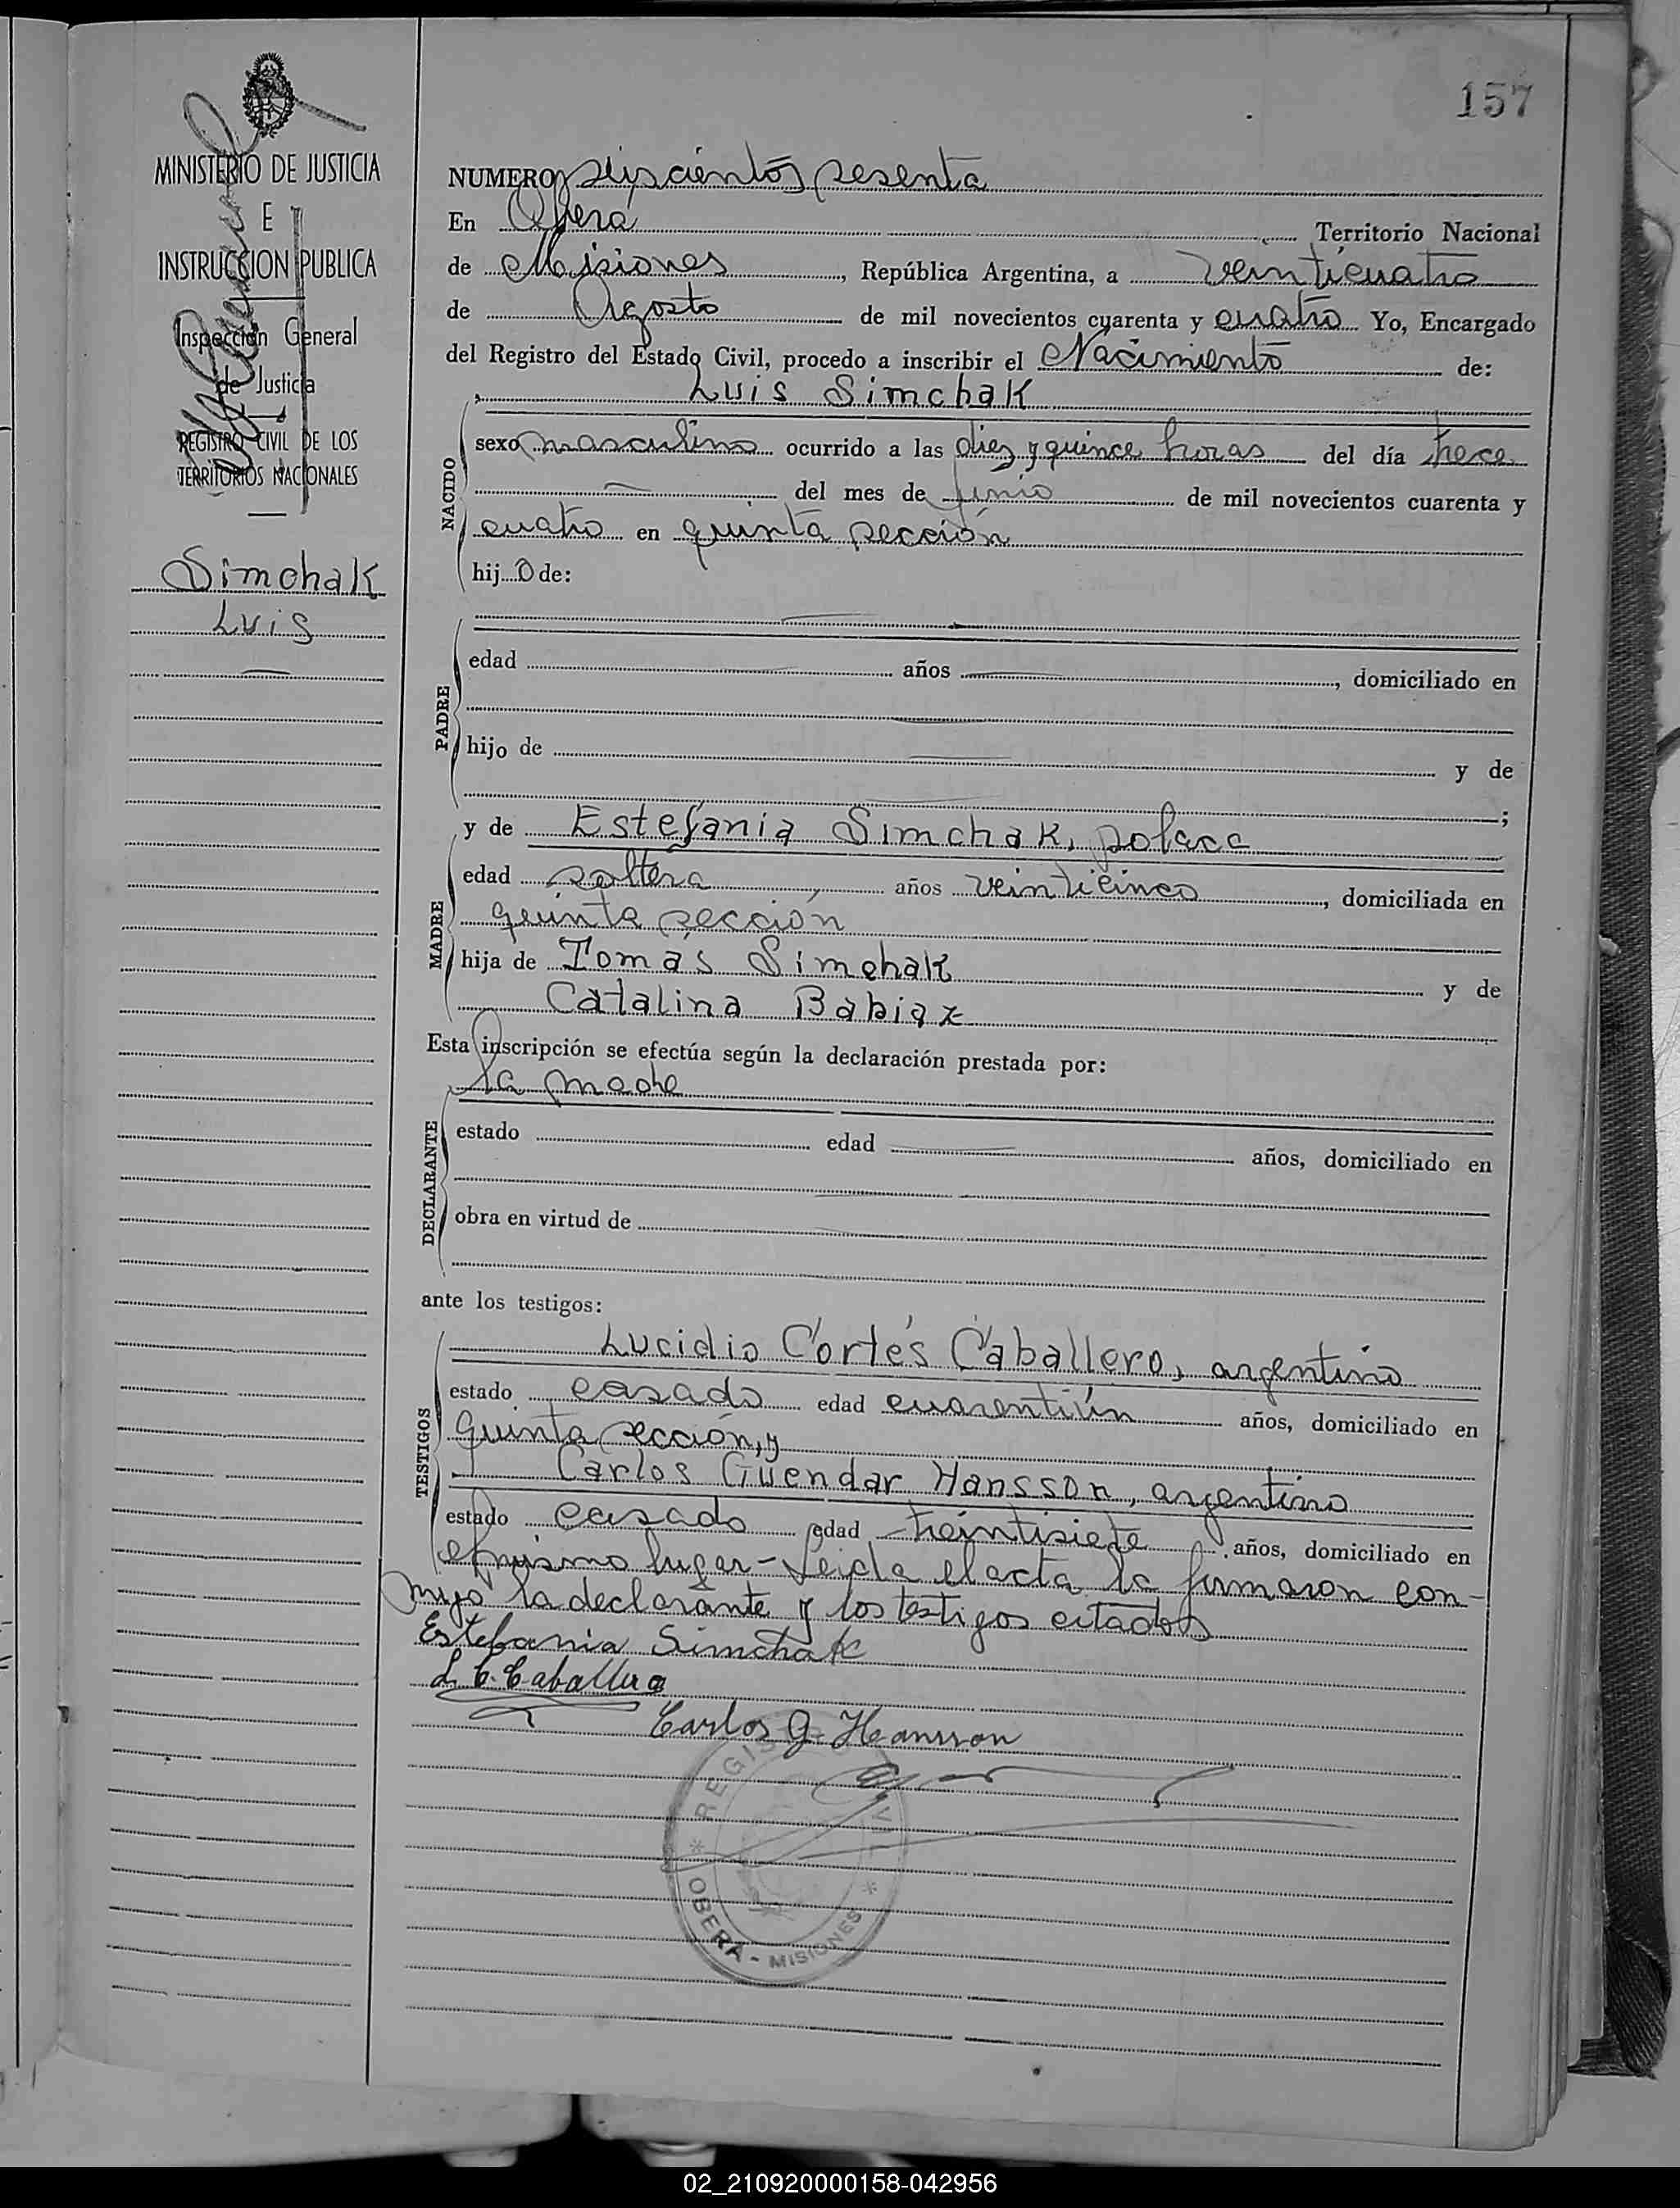 157
MINISTERIO DE JUSTICIA
E
INSTRUCCION PUBLICA
Inspección General
de Justicia
REGISTRO CIVIL DE LOS
TERRITORIOS NACIONALES
Simchak
Luis
NUMERO seiscientos sesenta
En Oberá Territorio Nacional
de Misiones, República Argentina, a veinticuatro
de Agosto de mil novecientos cuarenta y cuatro Yo, Encargado
del Registro del Estado Civil, procedo a inscribir el Nacimiento de:
Luis Simchak
NACIDO
sexo masculino ocurrido a las diez y quince horas del día trece
del mes de junio de mil novecientos cuarenta y
cuatro en quinta sección
hijo de:
PADRE
edad años , domiciliado en
hijo de y de
;
MADRE
y de Estefania Simchak, polaca
edad soltera años veinticinco, domiciliada en
quinta sección
hija de Tomás Simchak y de
Catalina Babiax
Esta inscripción se efectúa según la declaración prestada por:
la madre
DECLARANTE
estado edad años, domiciliado en
obra en virtud de
ante los testigos:
TESTIGOS
Lucidio Cortés Caballero, argentino
estado casado edad cuarentiún años, domiciliado en
quinta sección, y
Carlos Güendar Hansson, argentino
estado casado edad treintisiete años, domiciliado en
el mismo lugar - Leida el acta la firmaron con-
migo la declarante y los testigos citados
Estefania Simchak
L. C. Caballero
Carlos G. Hansson
REGISTRO CIVIL
OBERÁ - MISIONES
02_210920000158-042956